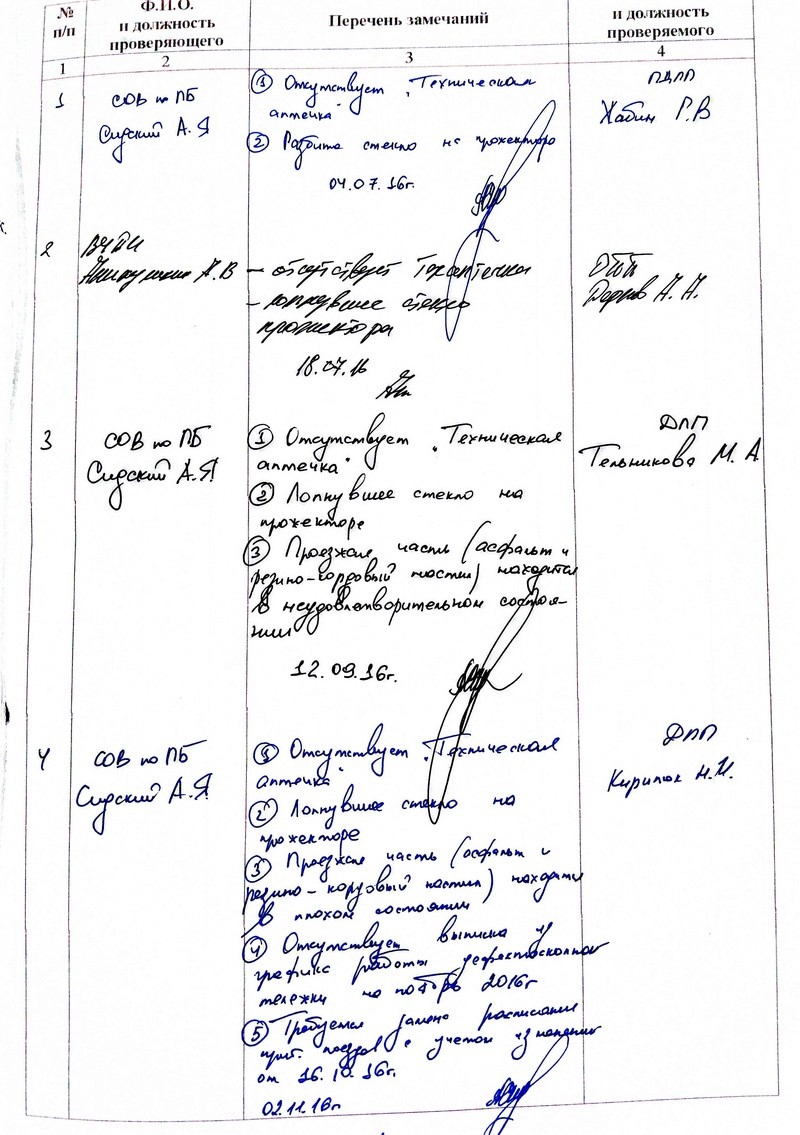 №
п/п
Ф.И.О.
и должность
проверяющего
Перечень замечаний
и должность
проверяемого
1
2
3
4
1
СОВ по ПБ
Сидский А. Я
① Отсутствует „Техническая
аптечка"
② Разбито стекло на прожекторе
04.07.16г.
ПДПП
Хабин Г.В
2
А.В
- отсутствует Техаптечка
- лопнувшее стекло
прожектора
18.07.16
3
СОВ по ПБ
Сидский А.Я
① Отсутствует „Техническая
аптечка"
② Лопнувшее стекло на
прожекторе
③ Проезжая часть (асфальт и
резино-кордовый настил) находится
в неудовлетворительном состоя-
нии
12.09.16г.
ДПП
Тельникова М. А
4
СОВ по ПБ
Сидский А.Я
① Отсутствует „Техническая
аптечка"
② Лопнувшее стекло на
прожекторе
③ Проезжая часть (асфальт и
резино-кордовый настил) находится
в плохом состоянии
④ Отсутствует выписка из
графика работы дефектоскопной
тележки на ноябрь 2016г
⑤ Требуется замена расписания
приг. поездов с учетом изменений
от 16.10.16г.
02.11.16г
ДПП
Кирипюк Н.И.